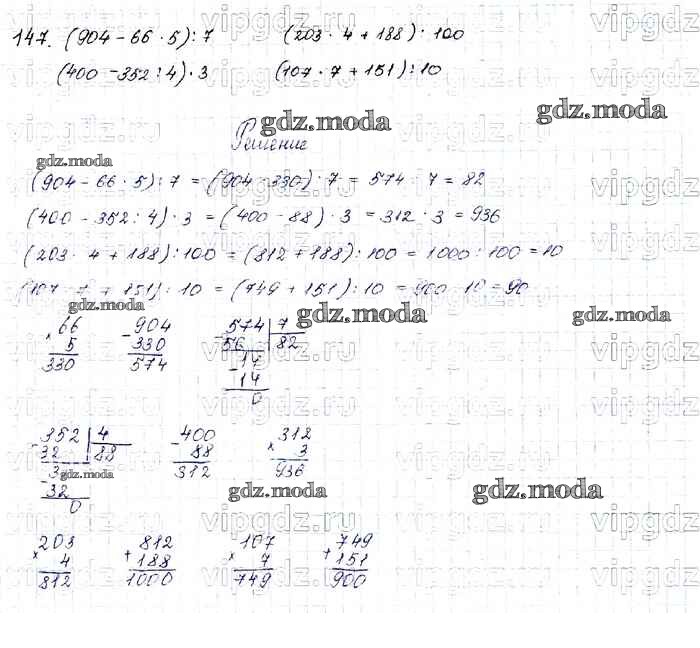 147. (904 - 66 · 5) : 7 (203 · 4 + 188) : 100
(400 - 352 : 4) · 3 (107 · 7 + 151) : 10
Решение
(904 - 66 · 5) : 7 = (904 - 330) : 7 = 574 : 7 = 82
(400 - 352 : 4) · 3 = (400 - 88) · 3 = 312 · 3 = 936
(203 · 4 + 188) : 100 = (812 + 188) : 100 = 1000 : 100 = 10
(107 · 7 + 151) : 10 = (749 + 151) : 10 = 900 : 10 = 90
66 904 574 7
× 5 - 330 - 56 82
330 574 14
- 14
0
352 4 400 312
- 32 88 - 88 × 3
3 312 936
- 32
0
203 812 107 749
× 4 + 188 × 7 + 151
812 1000 749 900
gdz.moda
gdz.moda
gdz.moda
gdz.moda
gdz.moda
gdz.moda
gdz.moda
gdz.moda
gdz.moda
gdz.moda
vipgdz.ru